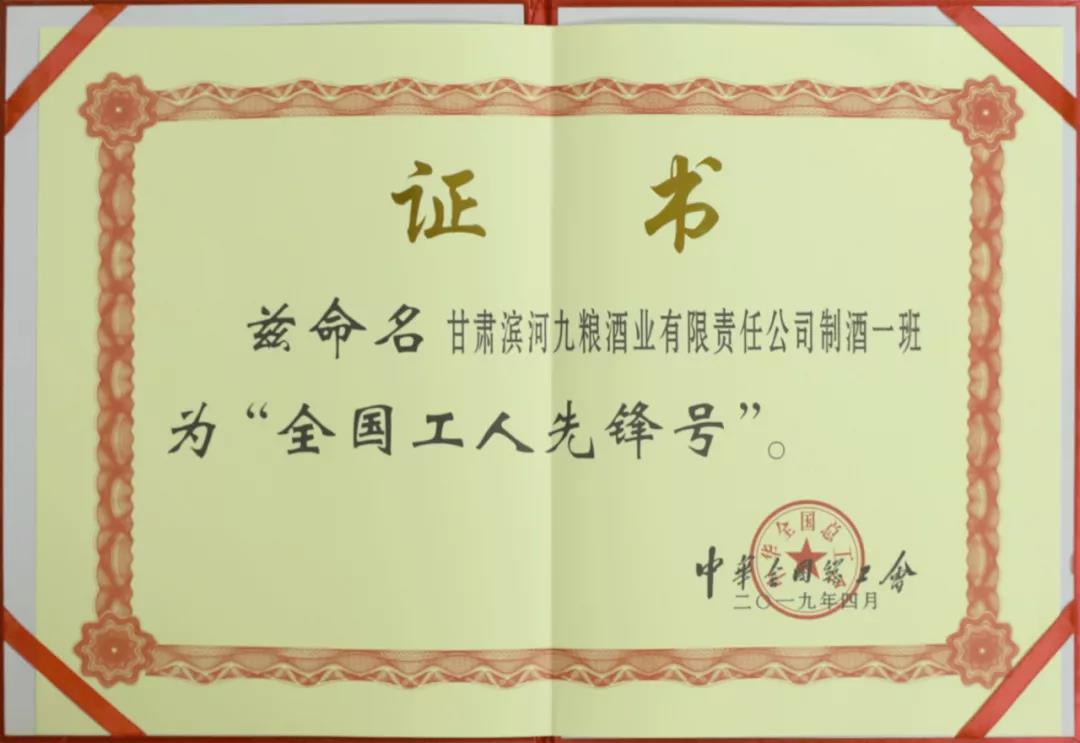 证书
兹命名 甘肃滨河九粮酒业有限责任公司制酒一班
为“全国工人先锋号”。
中华全国总工会
中華全國總工會
二〇一九年四月